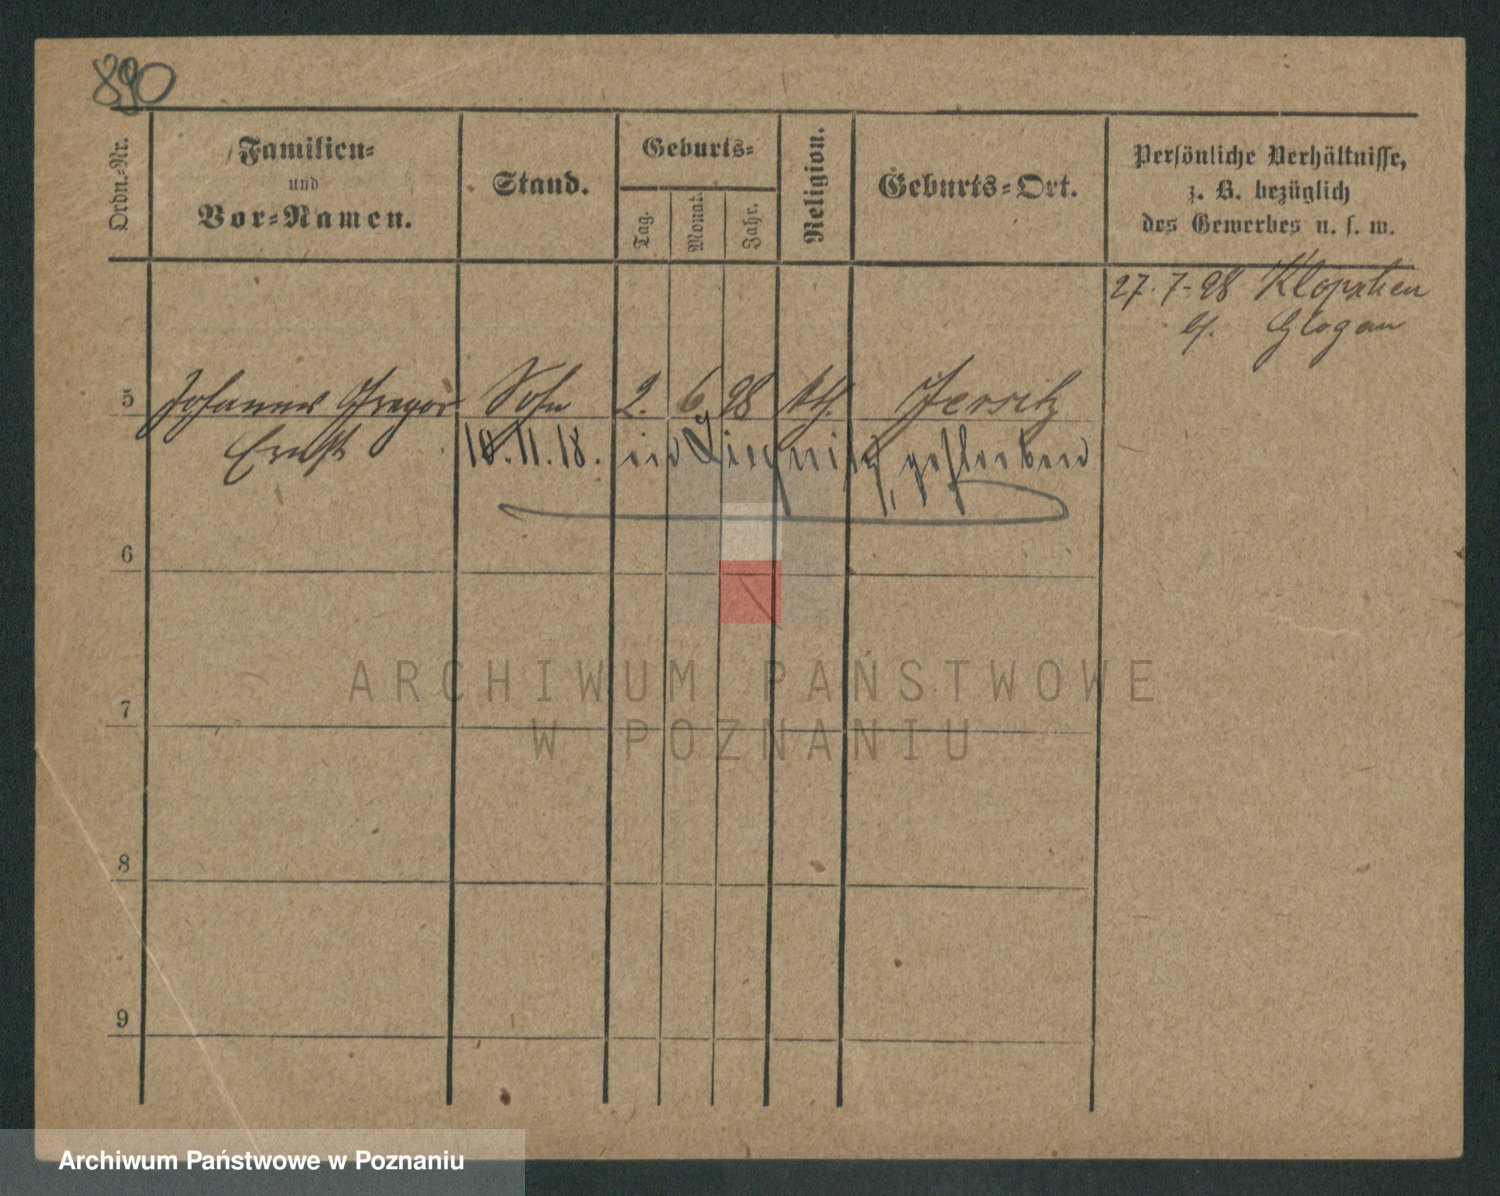 890
Ordn.-Nr.
Familien-
und
Vor-Namen.
Stand.
Geburts-
Tag.
Monat.
Jahr.
Religion.
Geburts-Ort.
Persönliche Verhältnisse,
z. B. bezüglich
des Gewerbes u. s. w.
27.7.98 Klopschen
Glogau
5 Johannes Gregor Sohn 2. 6 98 kth. Jersitz
Ernst 10.11.18. in Liegnitz, gestorben
6
7
8
9
ARCHIWUM PAŃSTWOWE
W POZNANIU
Archiwum Państwowe w Poznaniu